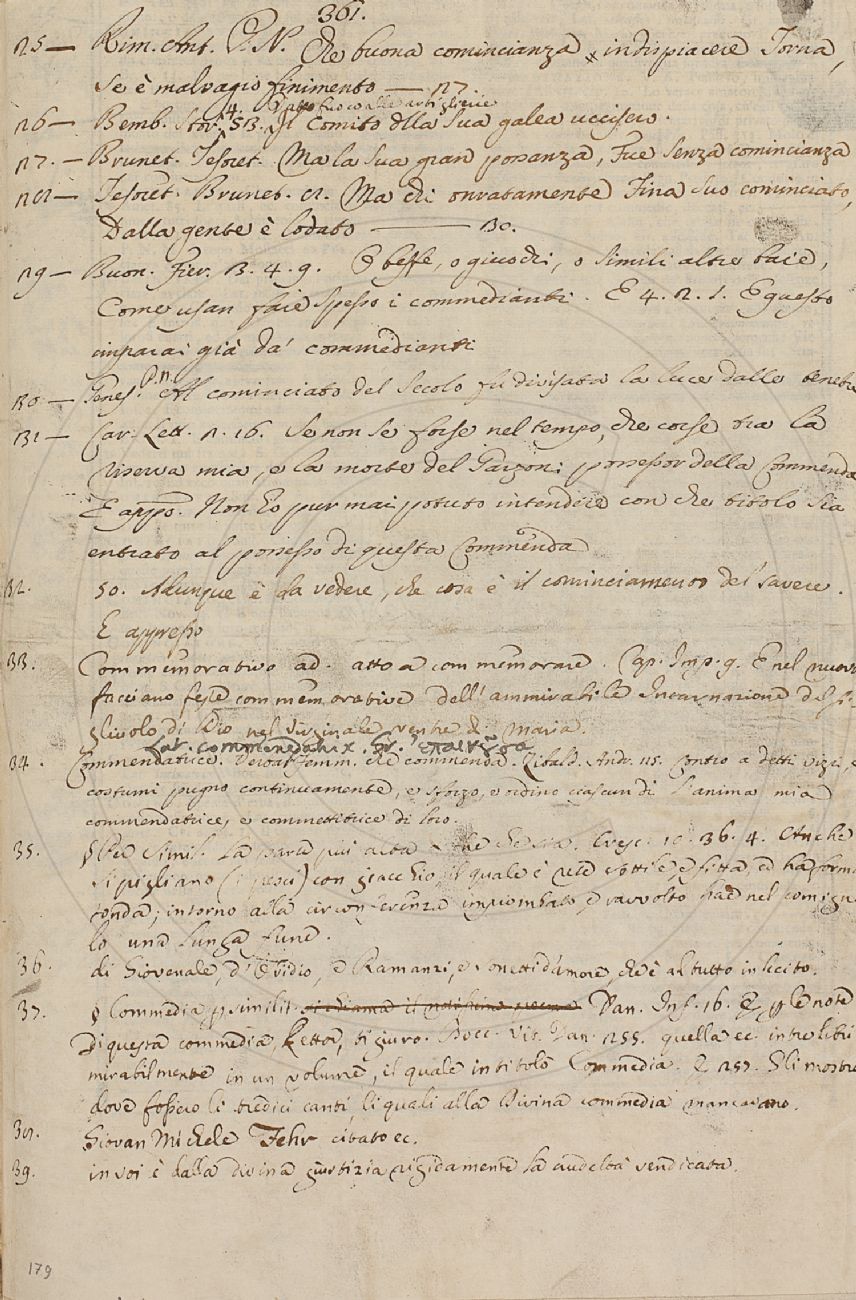 361.
25— Rim. Ant. P. N. Che buona comincianza indispiacere Torna,
Se è malvagio finimento — 27.
4. Dato fuoco alle artiglierie
26— Bemb. Stor. 53. Il Comito della Sua galea uccisero.
27.— Brunet. Tesoret. Ma la Sua gran possanza, Fue Senza comincianza
28— Tesoret. Brunet. 2. Ma chi onratamente Fina suo cominciato,
Dalla gente è lodato — 30.
29— Buon. Fier. 3. 4. 9. O beffe, o giuochi, o Simili altre baie,
Come usan fare Spesso i commedianti. E 4. 2. 1. E questo
imparai già da' commedianti
30— Genes. P. N. Al cominciato del Secolo fu divisata la luce dalle tenebre
31— Car. Lett. 2. 16. Se non se forse nel tempo, che corse tra la
riserva mia, e la morte del Garzoni possessor della Commenda
E appo. Non ho pur mai potuto intendere con che titolo Sia
entrato al possesso di questa Commenda
32. 50. Adunque è da vedere, che cosa è il cominciamento del Savere.
E appresso
33. Commemorativo ad. atto a commemorare. Cap. Imp. 9. E nel nuovo
facciano feste commemorative dell'ammirabile Incarnazione del fi-
gliuolo di Dio nel Virginale ventre di Maria.
Lat. commendatrix. Gr.
34. Commendatrice. Verbal. femm. che commenda. Libald. Andr. 115. Contro a detti vizi, e
costumi pugno continuamente, e sforzo, e ordino ciascun dì l'anima mia
commendatrice, e commettitrice di loro.
35. § Per Simil. La parte più alta che che sia. Cresc. 10. 36. 4. Anche
si pigliano (i pesci) con giacchio il quale è rete sottile, e fitta, ed ha forma
tonda; intorno alla circonferenza impiombato, e ravvolto hae nel comigno-
lo una lunga fune.
36. di Giovenale, d'Ovidio, e Ramanzi, e sonetti d'amore, che è al tutto inlecito.
37. § Commedia p similit. Dan. Inf. 16. E p le note
Di questa commedia, lettor, ti giuro. Bocc. Vit. Dan. 255. quella ec. in tre libri
mirabilmente in un volume, il quale intitolò Commedia. E 257. Gli mostrò
dove fossero li tredici canti, li quali alla Divina commedia mancavano.
38. Giovan Michele Fehr citato ec.
39. in voi è dalla divina giustizia rigidamente la crudeltà vendicata.
179